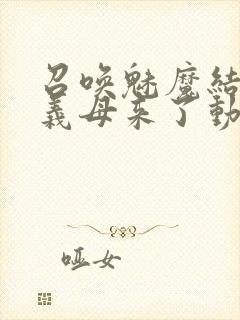 召唤魅魔结
义母来了动
哑女